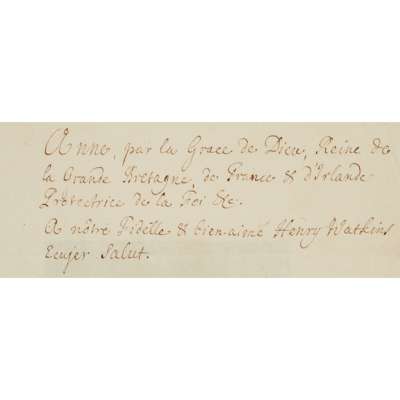 Anne, par la Grace de Dieu, Reine de
la Grande Bretagne, de France & d'Irlande
Protectrice de la Foi &c.
A nôtre Fidélle & bien-aimé Henry Watkins
Ecujer Salut.